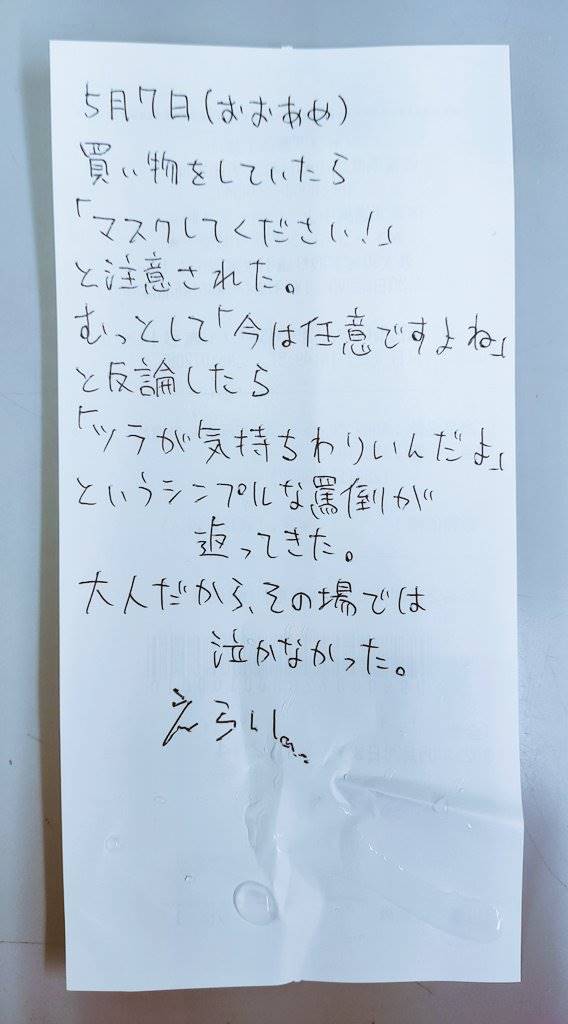 5月7日(おおあめ)
買い物をしていたら
「マスクしてください!」
と注意された。
むっとして「今は任意ですよね」
と反論したら
「ツラが気持ちわりいんだよ」
というシンプルな罵倒が
返ってきた。
大人だから、その場では
泣かなかった。
えらい。